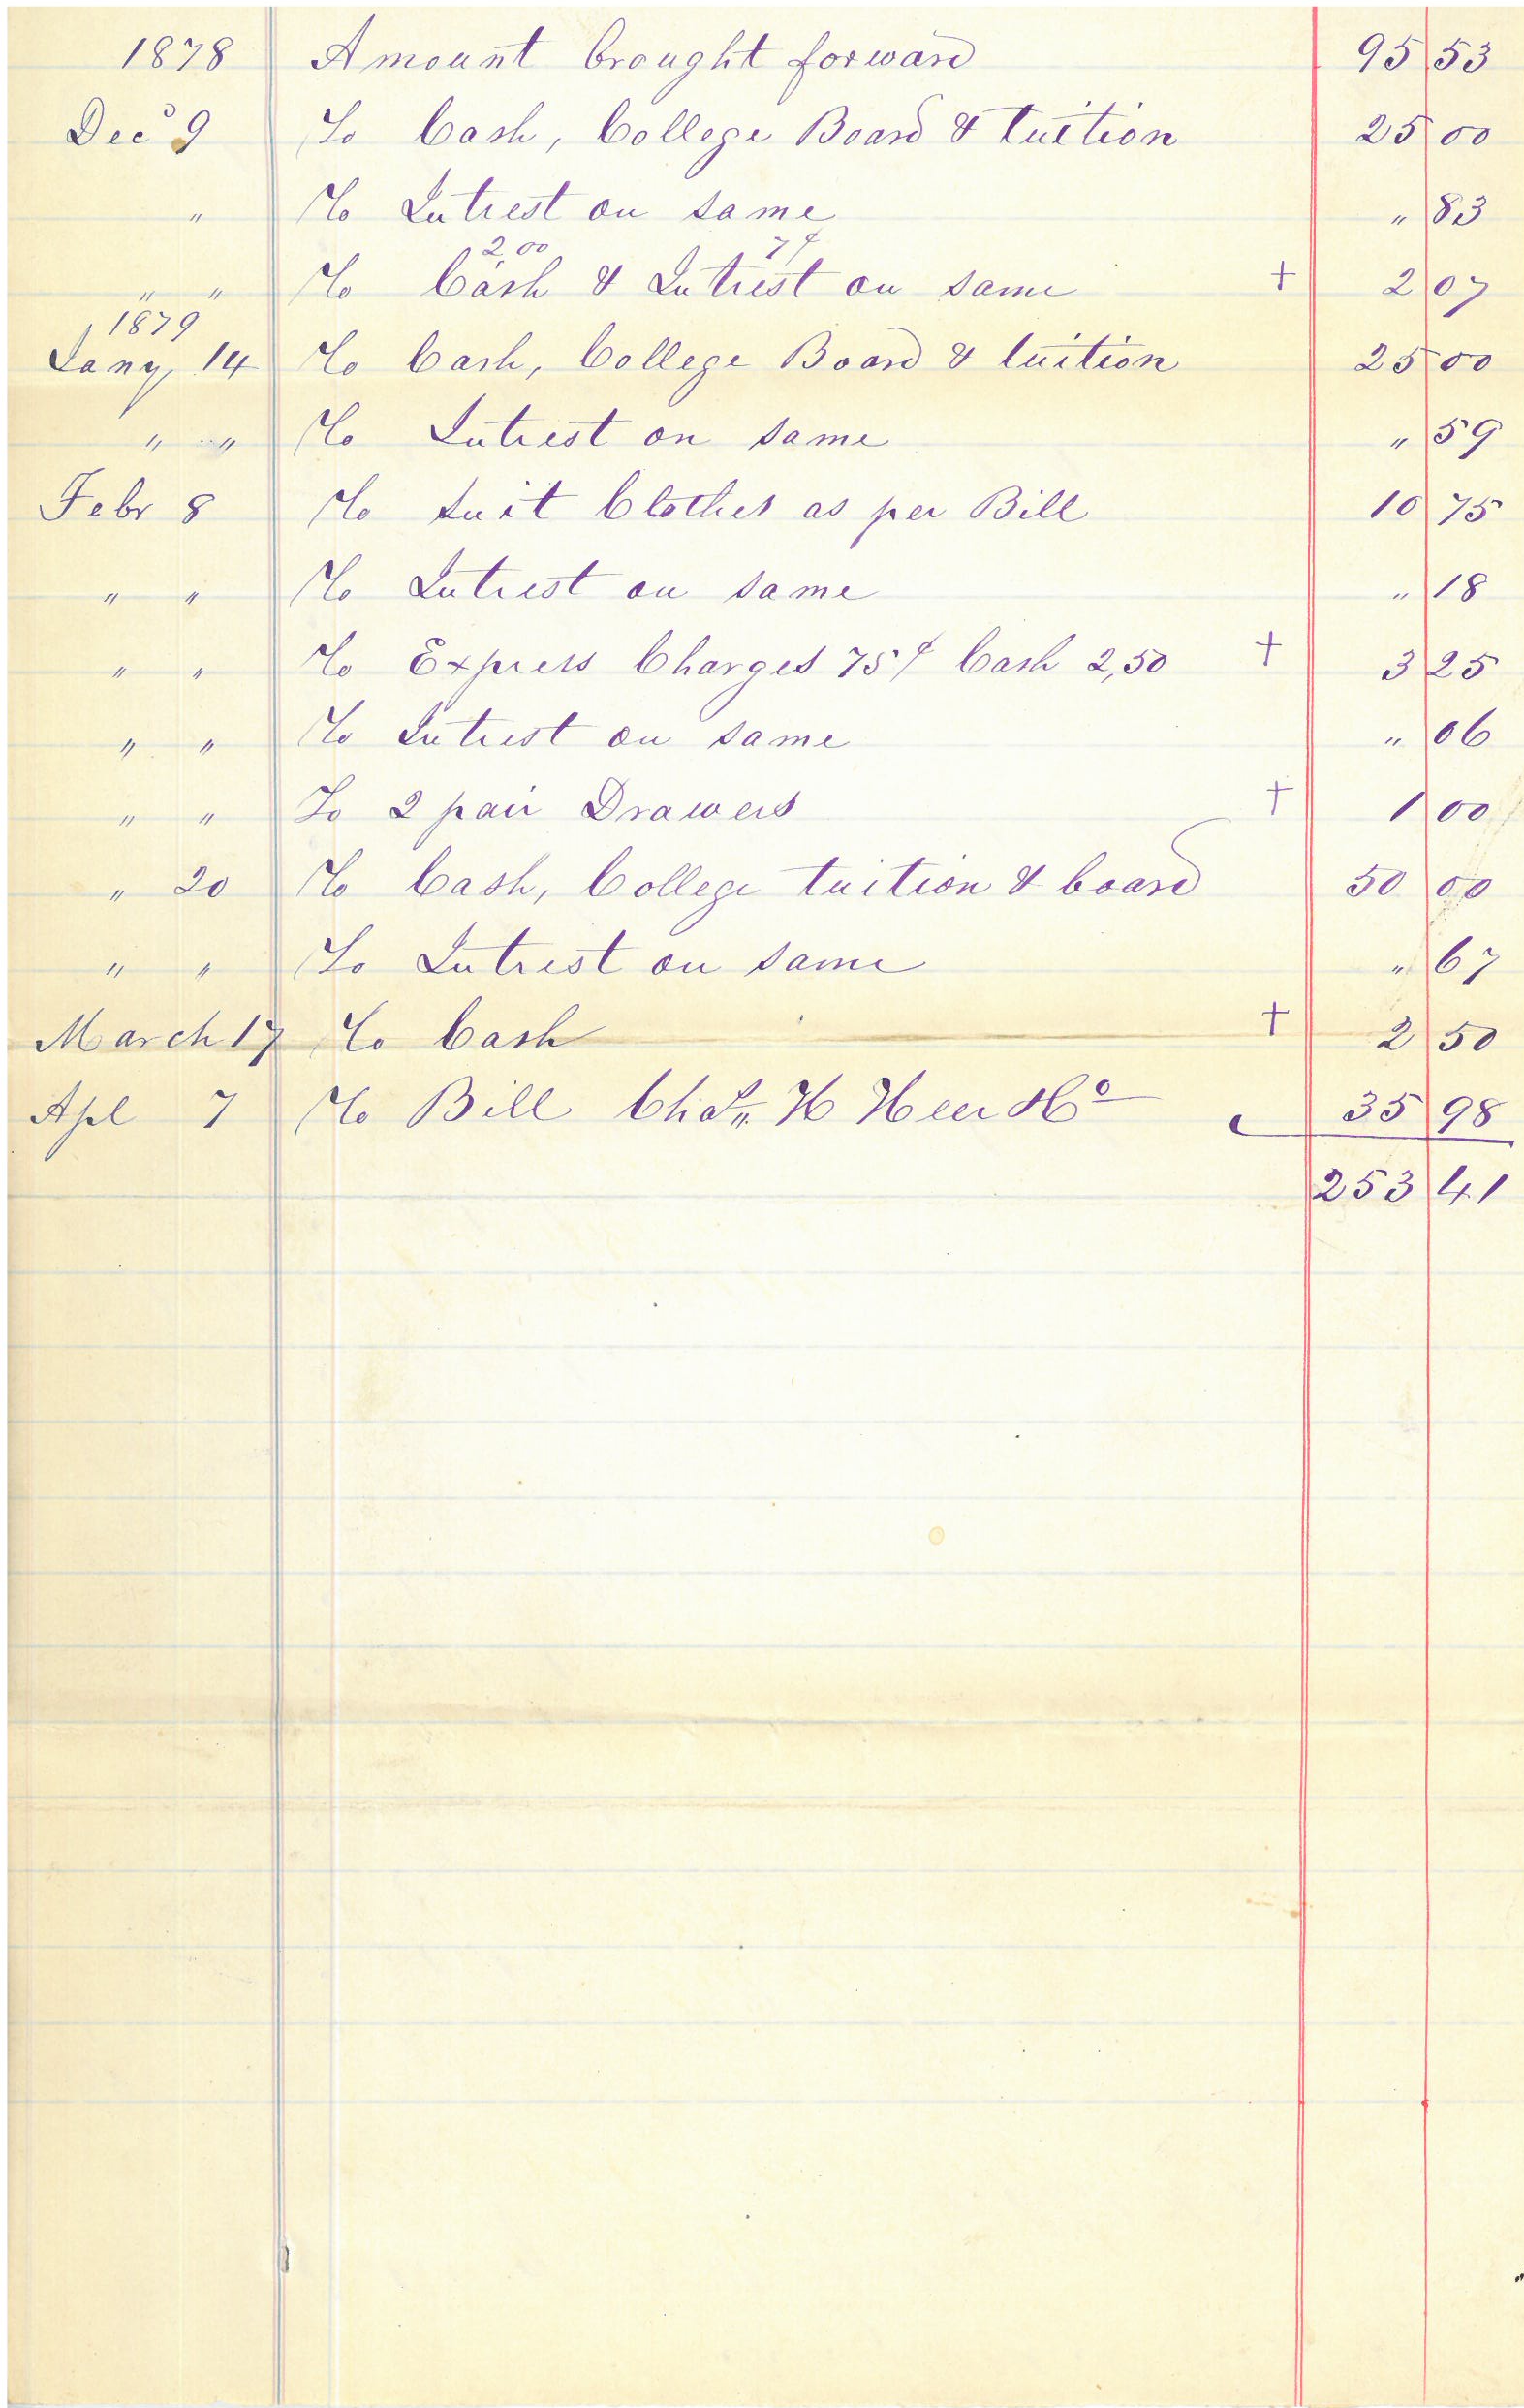 1878 Amount brought forward 95 53
Dec 9 To Cash, College Board & tuition 25 00
" To Intrest on same " 83
2,00 7¢
" " To Cash & Intrest on same + 2 07
1879
Jany, 14 To Cash, College Board & tuition 25 00
" " To Intrest on same " 59
Febr 8 To suit Clothes as per Bill 10 75
" " To Intrest on same " 18
" " To Express Charges 75¢ Cash 2,50 + 3 25
" " To Intrest on same " 06
" " To 2 pair Drawers + 1 00
" 20 To Cash, College tuition & board 50 00
" " To Intrest on same " 67
March 17 To Cash + 2 50
Apl 7 To Bill 35 98
253 41